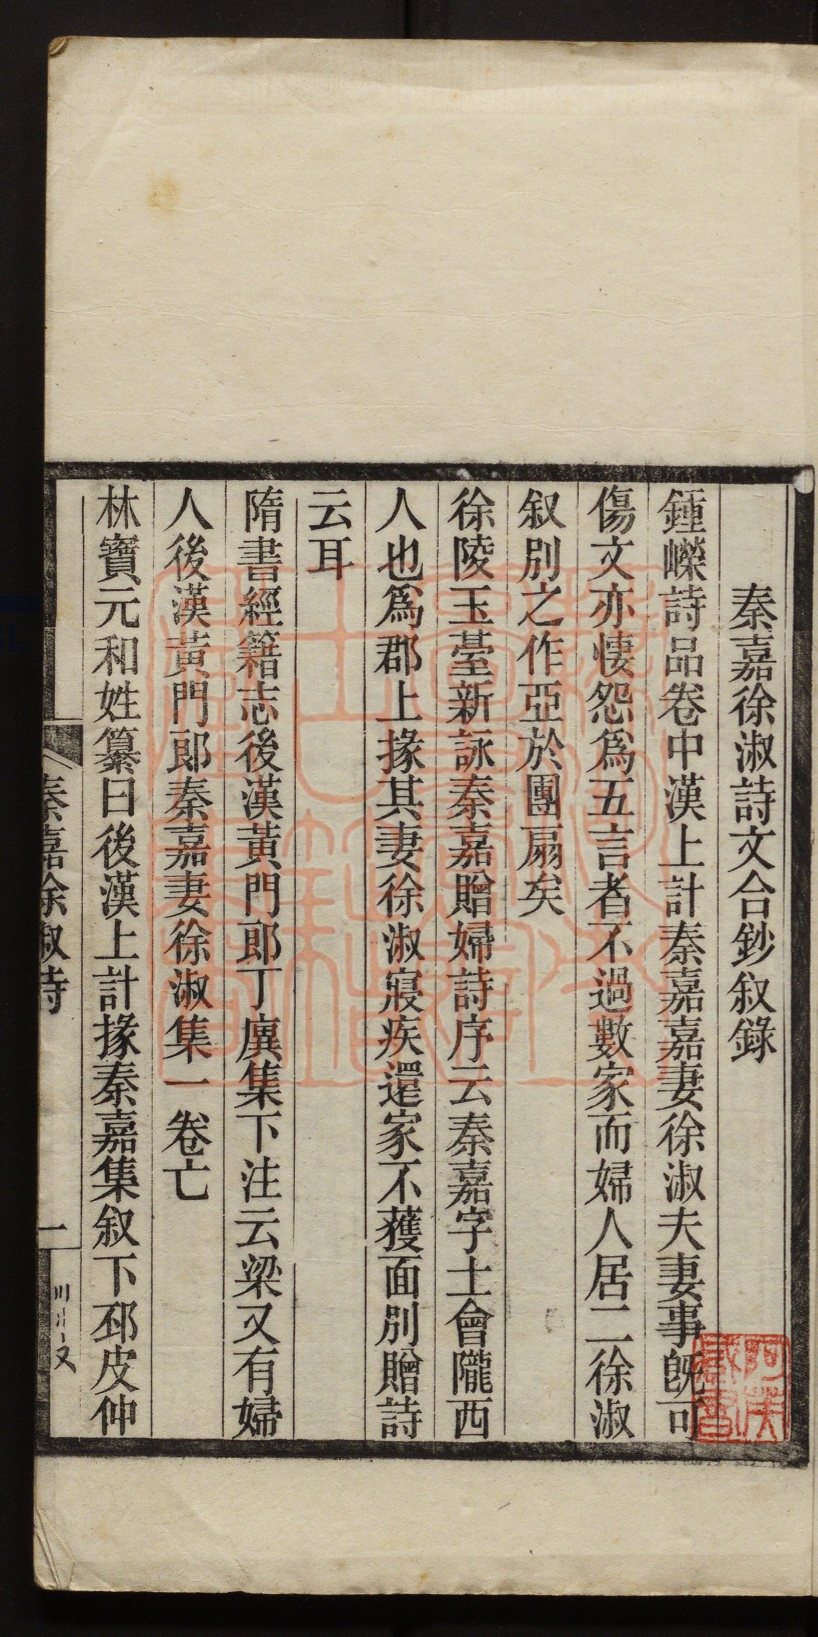 秦嘉徐淑詩文合鈔叙錄
鍾嶸詩品卷中漢上計秦嘉嘉妻徐淑夫妻事旣可
傷文亦悽怨爲五言者不過數家而婦人居二徐淑
叙別之作亞於團扇矣
徐陵玉臺新詠秦嘉贈婦詩序云秦嘉字士會隴西
人也爲郡上掾其妻徐淑寢疾還家不獲面別贈詩
云耳
隋書經籍志後漢黃門郎丁廙集下注云梁又有婦
人後漢黃門郎秦嘉妻徐淑集一卷亡
林寶元和姓纂曰後漢上計掾秦嘉集叙下邳皮仲
秦嘉徐淑詩
一